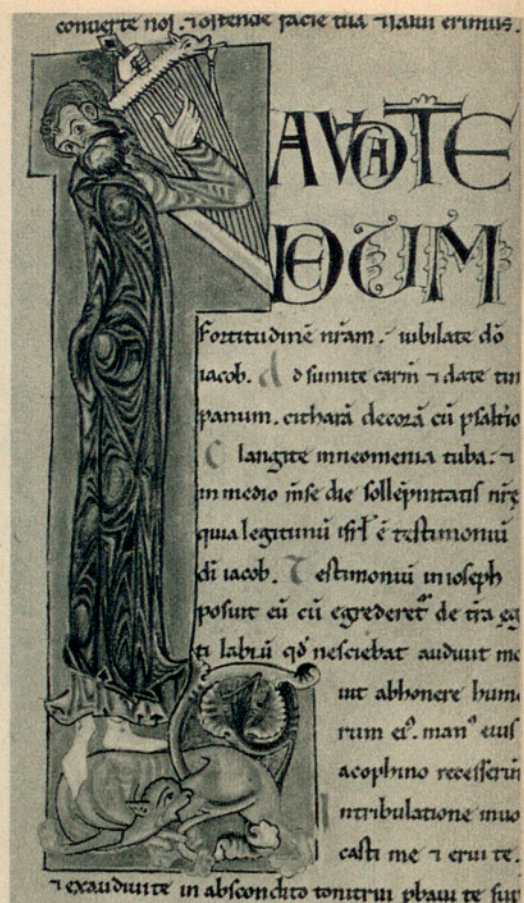 conuerte nos. ⁊ ostende facie tua ⁊ salui erimus.
LAVDATE
DEUM
Fortitudinē nr̄am. iubilate dō
iacob. Ad sumite carm̄ ⁊ date tim
panum. citharā decorā cū psaltīo
Clangite inneomenia tuba. ⁊
in medio m̄se die sollēpnitatis nr̄ę
quia legitimū isrl̄ ē testimoniū
dī iacob. Testimoniū inioseph
posuit eū cū egrederet᷑ de tr̄a eg
ti labiū qd̄ nesciebat audiuit mo
uit abhonere hum
rum ei᷒. man᷒ eius
acophino recesserūt
Intribulatione inuo
casti me ⁊ erui te.
⁊ exaudiuite in abscondito tonitrui pbaui te sup